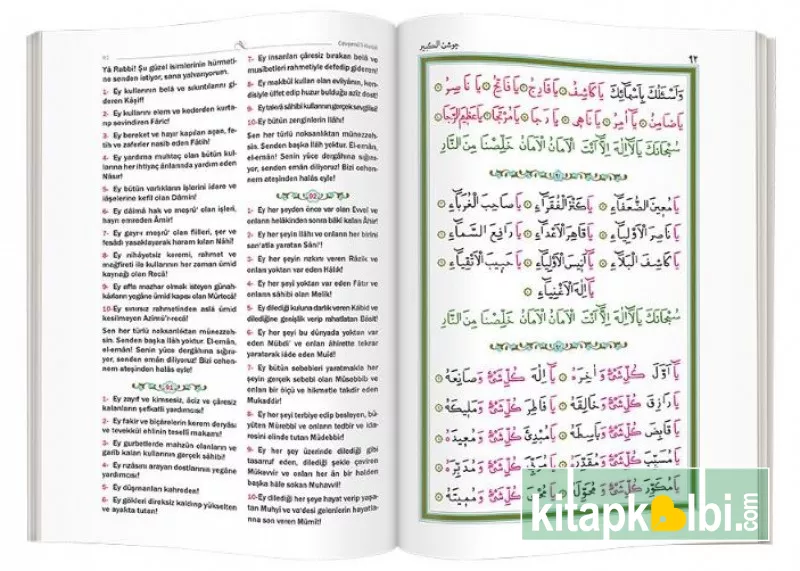 92
Cevşenü'l-Kebîr
Yâ Rabbi! Şu güzel isimlerinin hürmeti-
ne senden istiyor, sana yalvarıyorum.
1- Ey kullarının belâ ve sıkıntılarını gi-
deren Kâşif!
2- Ey kullarını elem ve kederden kurta-
rıp sevindiren Fâric!
3- Ey bereket ve hayır kapıları açan, fe-
tih ve zaferler nasib eden Fâtih!
4- Ey yardıma muhtaç olan bütün kul-
larına her ihtiyaç ânlarında yardım eden
Nâsır!
5- Ey bütün varlıkların işlerini idare ve
iâşelerine kefil olan Dâmin!
6- Ey dâima hak ve meşrû' olan işleri,
hayrı emreden Âmir!
7- Ey gayrı meşrû' olan fiilleri, şer ve
fesâdı yasaklayarak haram kılan Nâhi!
8- Ey nihâyetsiz keremi, rahmet ve
mağfireti ile kullarının her zaman ümid
kaynağı olan Recâ!
9- Ey affa mazhar olmak isteyen günah-
kârların yegâne ümid kapısı olan Mürtecâ!
10- Ey sınırsız rahmetinden aslâ ümid
kesilmeyen Azîmü'r-recâ!
Sen her türlü noksanlıktan münezzeh-
sin. Senden başka İlâh yoktur. El-emân,
el-emân! Senin yüce dergâhına sığınıyor,
senden emân diliyoruz! Bizi cehen-
nem ateşinden halâs eyle!
91
1- Ey zayıf ve kimsesiz, âciz ve çâresiz
kalanların şefkatli yardımcısı!
2- Ey fakir ve bîçârelerin kerem deryâsı
ve tevekkül ehlinin teselli makamı!
3- Ey gurbetlerde mahzun olanların ve
garib kalan kullarının gerçek sâhibi!
4- Ey rızâsını arayan dostlarının yegâne
yardımcısı!
5- Ey düşmanları kahreden!
6- Ey gökleri direksiz kaldırıp yükselten
ve ayakta tutan!
7- Ey insanları çâresiz bırakan belâ ve
musîbetleri rahmetiyle defedip gideren!
8- Ey makbûl kulları olan evliyânın, ken-
disiyle ülfet edip huzur bulduğu azîz dost!
9- Ey takvâ sâhibi kullarının gerçek sevgilisi!
10-Ey bütün zenginlerin İlâhı!
Sen her türlü noksanlıktan münezzeh-
sin. Senden başka İlâh yoktur. El-emân,
el-emân! Senin yüce dergâhına sığınıyor,
senden emân diliyoruz! Bizi cehen-
nem ateşinden halâs eyle!
92
1- Ey her şeyden önce var olan Evvel ve
onların helâkinden sonra bâki kalan Âhir!
2- Ey her şeyin İlâhı ve onların her birini
san'atla yaratan Sâni'!
3- Ey her şeyin rızkını veren Râzık ve
onları yoktan var eden Hâlik!
4- Ey her şeyi yoktan var eden Fâtır ve
onların sâhibi olan Melik!
5- Ey dilediği kuluna darlık veren Kâbid ve
dilediğine genişlik verip rahatlatan Bâsit!
6- Ey her şeyi bu dünyada yoktan var
eden Mübdi' ve onları âhirette tekrar
yaratarak iâde eden Muîd!
7- Ey bütün sebebleri yaratmakla her
şeyin gerçek sebebi olan Müsebbib ve
onları bir ölçü ve hikmetle takdir eden
Mukaddir!
8- Ey her şeyi terbiye edip besleyen, bü-
yüten Mürebbi ve onların tedbir ve ida-
resini elinde tutan Müdebbir!
9- Ey her şey üzerinde dilediği gibi
tasarruf eden, dilediği şekle çeviren
Mükevvir ve onları her ân bir halden
başka hâle sokan Muhavvil!
10-Ey dilediği her şeye hayat verip yaşa-
tan Muhyi ve va'desi gelenlerin hayatla-
rına son veren Mümit!
جوشن الكبير
٩٢
وَاَسْئَلُكَ بِاَسْمَائِكَ يَا كَاشِفُ يَا فَارِجُ يَا فَاتِحُ يَا نَاصِرُ
يَا ضَامِنُ يَا اٰمِرُ يَا نَاهِي يَا رَجَا يَا مُرْتَجَا يَا عَظِيمَ الرَّجَا
سُبْحَانَكَ يَا لَٓا اِلٰهَ اِلَّٓا اَنْتَ الْاَمَانُ الْاَمَانُ خَلِّصْنَا مِنَ النَّارِ
يَا مُعِينَ الضُّعَفَٓاءِ يَا كَنْزَ الْفُقَرَٓاءِ يَا صَاحِبَ الْغُرَبَٓاءِ
يَا نَاصِرَ الْاَوْلِيَٓاءِ يَا قَاهِرَ الْاَعْدَٓاءِ يَا رَافِعَ السَّمَٓاءِ
يَا كَاشِفَ الْبَلَٓاءِ يَا اَنِيسَ الْاَوْلِيَٓاءِ يَا حَبِيبَ الْاَتْقِيَٓاءِ
يَا اِلٰهَ الْاَغْنِيَٓاءِ
سُبْحَانَكَ يَا لَٓا اِلٰهَ اِلَّٓا اَنْتَ الْاَمَانُ الْاَمَانُ خَلِّصْنَا مِنَ النَّارِ
يَا اَوَّلَ كُلِّ شَيْءٍ وَاٰخِرَهُ يَا اِلٰهَ كُلِّ شَيْءٍ وَصَانِعَهُ
يَا رَازِقَ كُلِّ شَيْءٍ وَخَالِقَهُ يَا فَاطِرَ كُلِّ شَيْءٍ وَمَلِيكَهُ
يَا قَابِضَ كُلِّ شَيْءٍ وَبَاسِطَهُ يَا مُبْدِئَ كُلِّ شَيْءٍ وَمُعِيدَهُ
يَا مُسَبِّبَ كُلِّ شَيْءٍ وَمُقَدِّرَهُ يَا مُرَبِّيَ كُلِّ شَيْءٍ وَمُدَبِّرَهُ
يَا مُكَوِّرَ كُلِّ شَيْءٍ وَمُحَوِّلَهُ يَا مُحْيِيَ كُلِّ شَيْءٍ وَمُمِيتَهُ
kitapkalbi.com